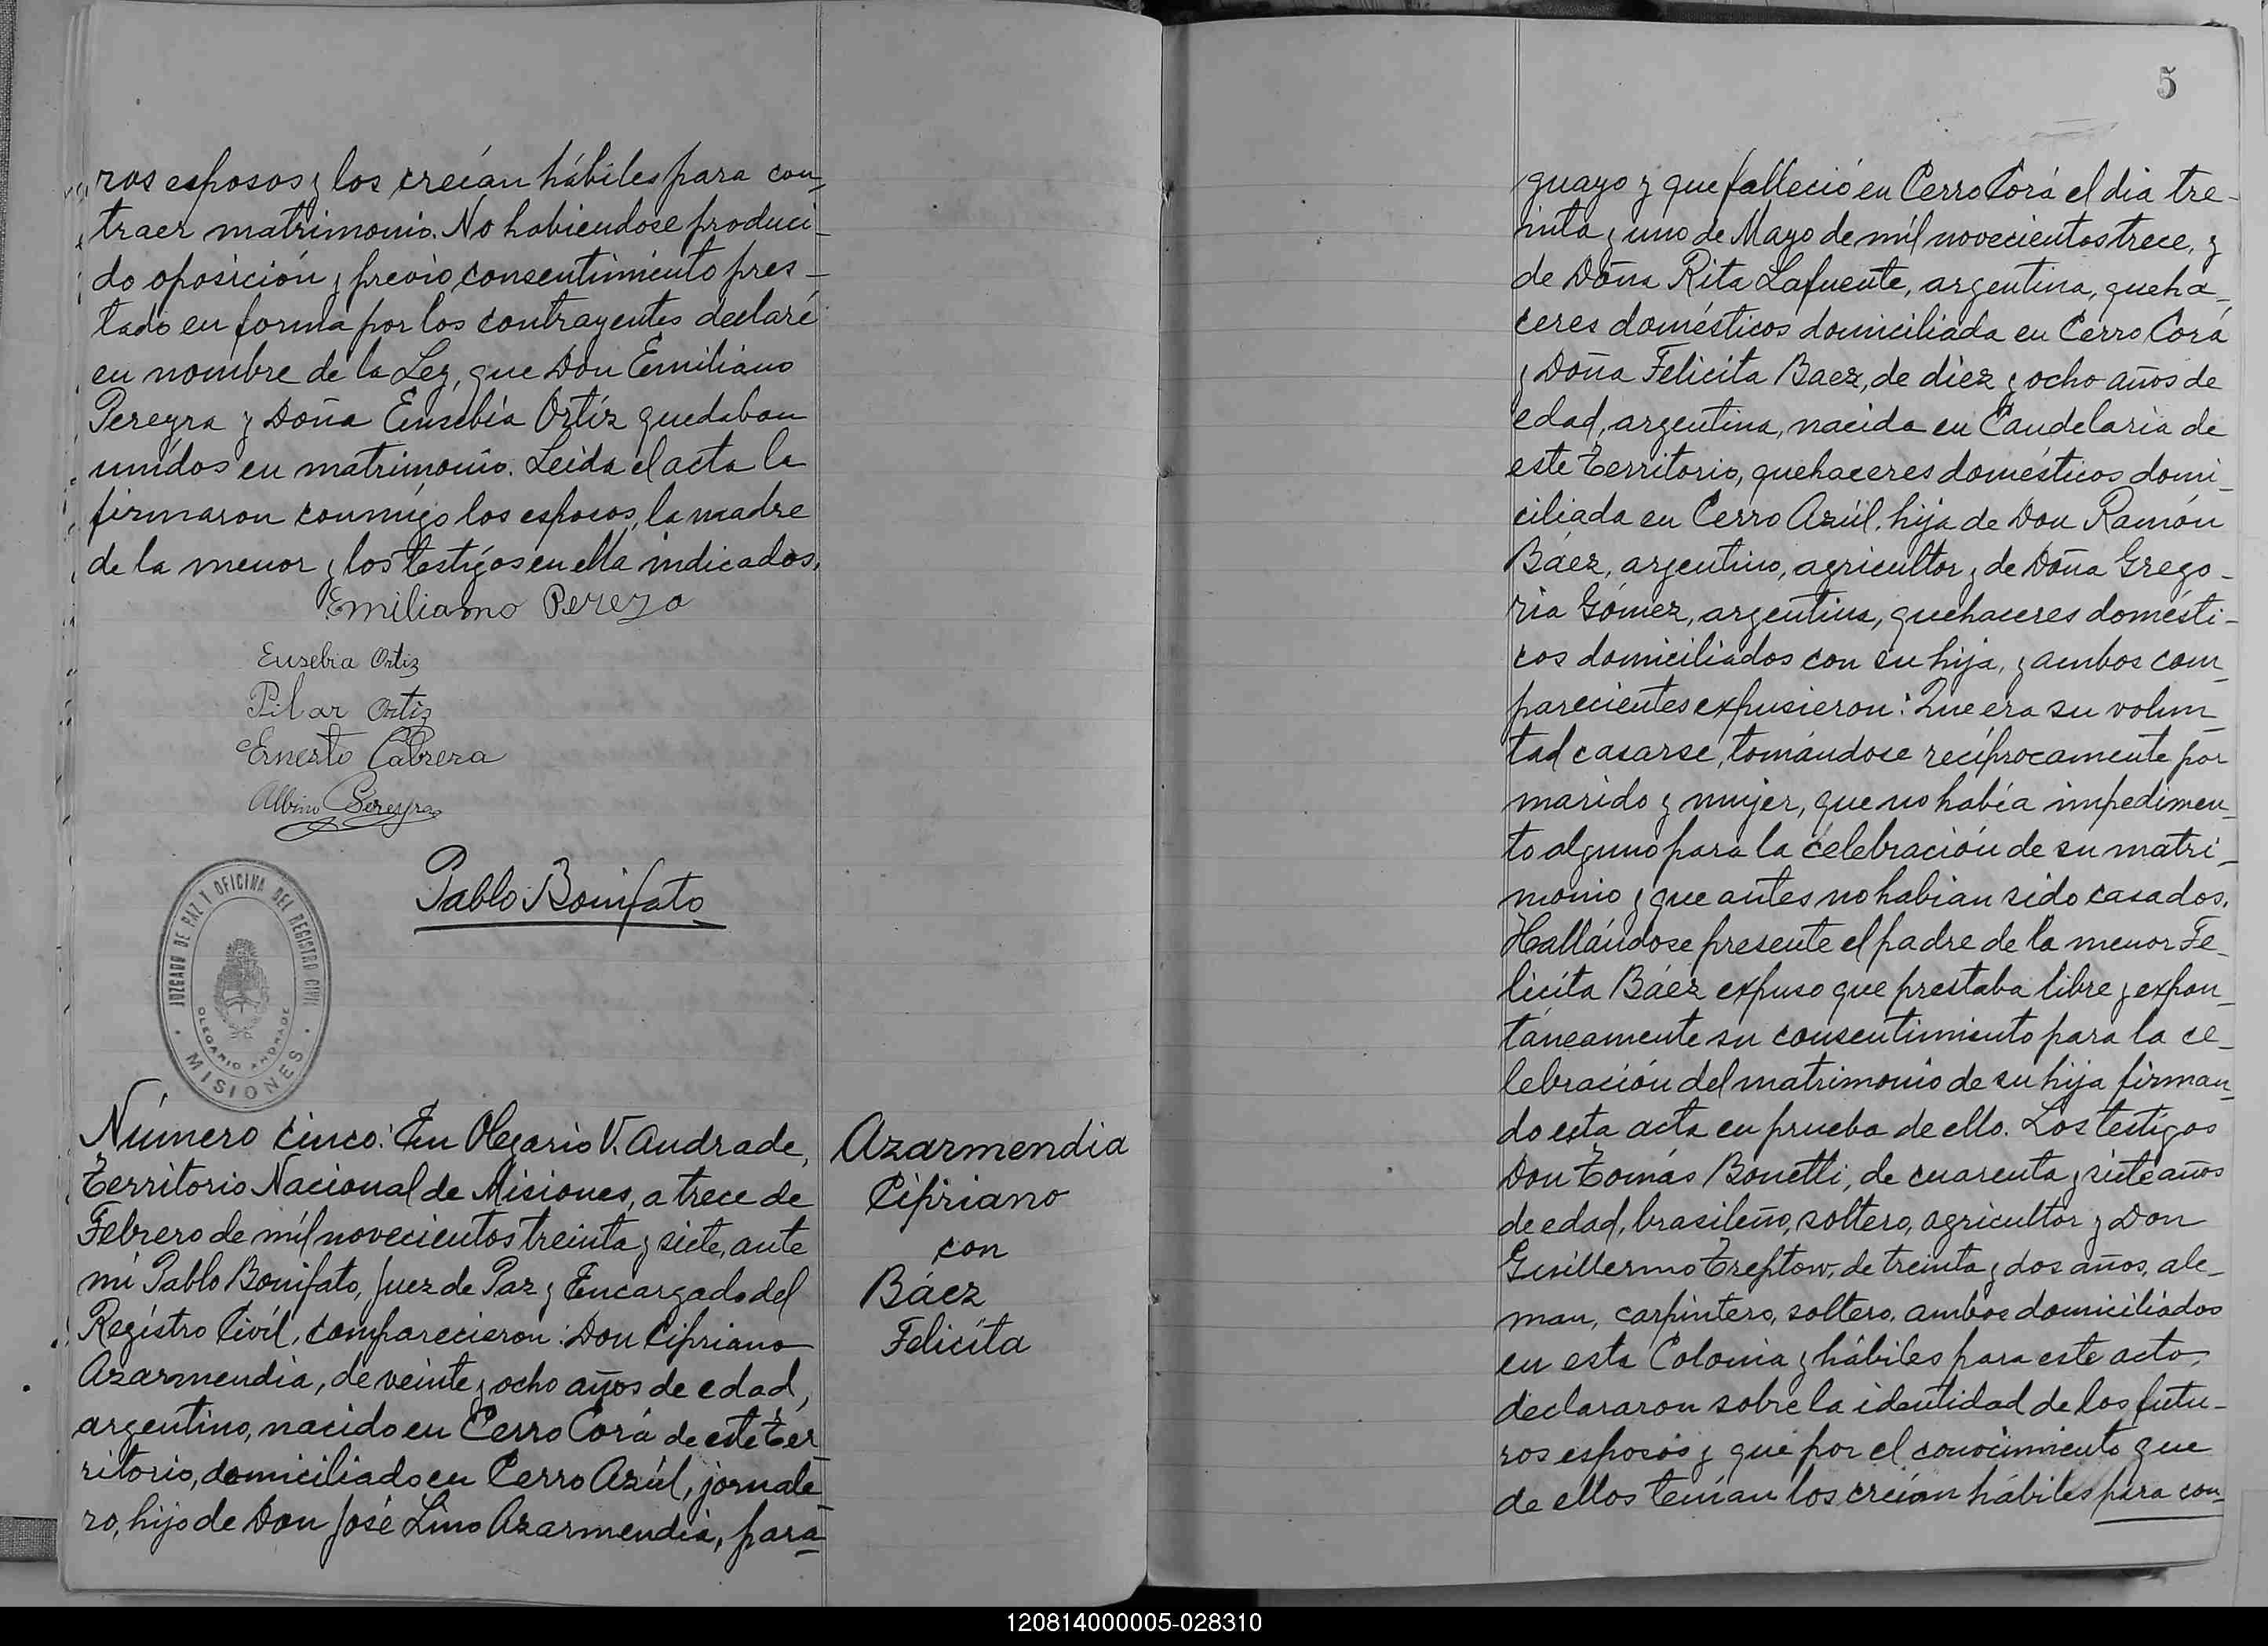 ros esposos y los creían hábiles para con-
traer matrimonio. No habiendose produci-
do oposición y previo consentimiento pres-
tado en forma por los contrayentes declaré
en nombre de la Ley, que Don Emiliano
Pereyra y Doña Eusebia Ortíz quedaban
unidos en matrimonio. Leida el acta la
firmaron conmigo los esposos, la madre
de la menor y los testigos en ella indicados.
Emiliano Pereyo
Eusebia Ortiz
Pilar Ortiz
Ernesto Cabrera
Albino Pereyra
Pablo Bonifato
JUZGADO DE PAZ Y OFICINA DEL REGISTRO CIVIL
OLEGARIO ANDRADE
· MISIONES ·
Número cinco: En Olegario V. Andrade,
Territorio Nacional de Misiones, a trece de
Febrero de mil novecientos treinta y siete, ante
mi Pablo Bonifato, Juez de Paz y Encargado del
Registro Civil, comparecieron: Don Cipriano
Azarmendia, de veinte y ocho años de edad,
argentino, nacido en Cerro Corá de este Ter
ritorio, domiciliado en Cerro Azúl, jornale-
ro, hijo de Don José Lino Azarmendia, para-
Azarmendia
Cipriano
con
Báez
Felicíta
5
guayo y que falleció en Cerro Corá el dia tre-
inta y uno de Mayo de mil novecientos trece, y
de Doña Rita Lafuente, argentina, queha-
ceres domésticos domiciliada en Cerro Corá
y Doña Felicita Baez, de diez y ocho años de
edad, argentina, nacida en Candelaria de
este Territorio, quehaceres domésticos domi-
ciliada en Cerro Azúl, hija de Don Ramón
Báez, argentino, agricultor y de Doña Grego-
ria Gómez, argentina, quehaceres domésti-
cos domiciliados con su hija, y ambos com-
parecientes expusieron: Que era su volun-
tad casarse, tomándose recíprocamente por
marido y mujer, que no había impedimen-
to alguno para la celebración de su matri-
monio y que antes no habian sido casados.
Hallándose presente el padre de la menor Fe-
licita Báez expuso que prestaba libre y expon-
táneamente su consentimiento para la ce-
lebración del matrimonio de su hija firman-
do esta acta en prueba de ello. Los testigos
Don Tomás Bonetti, de cuarenta y siete años
de edad, brasileño, soltero, agricultor y Don
Guillermo Treptow, de treinta y dos años, ale-
man, carpintero, soltero, ambos domiciliados
en esta Colonia y hábiles para este acto,
declararon sobre la identidad de los futu-
ros esposos y que por el conocimiento que
de ellos tenían los creían hábiles para con-
120814000005-028310